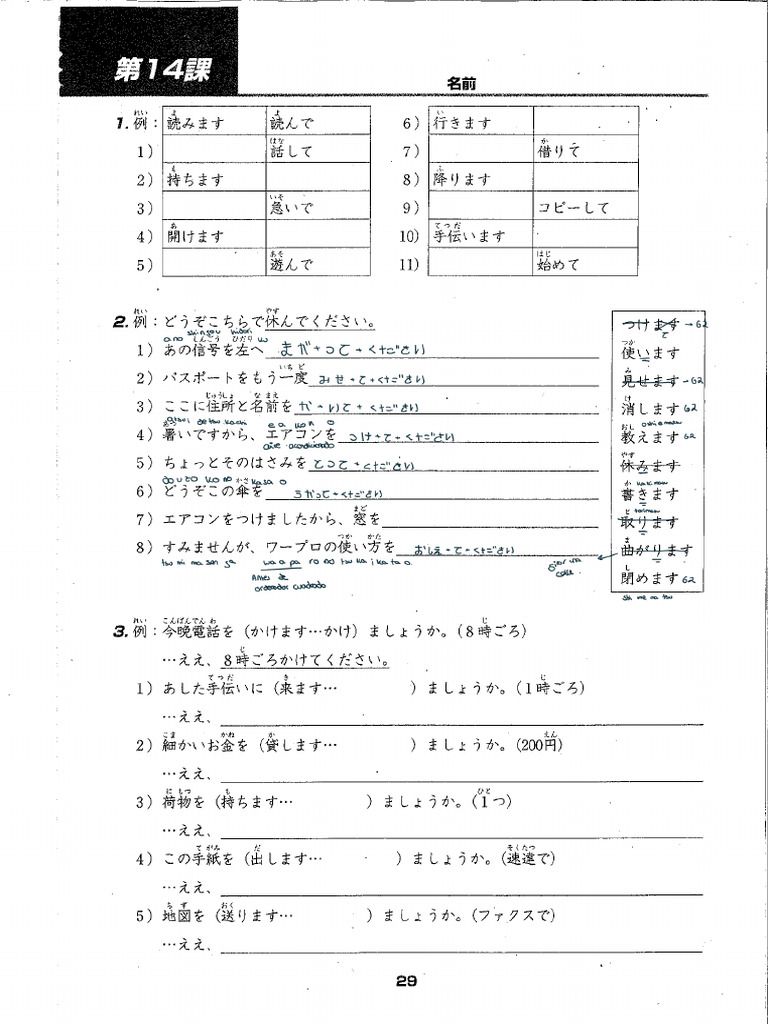 第14課
名前
1. 例：読みます 読んで
1) 話して
2) 持ちます
3) 急いで
4) 開けます
5) 遊んで
6) 行きます
7) 借りて
8) 降ります
9) コピーして
10) 手伝います
11) 始めて
2. 例：どうぞこちらで休んでください。
1) あの信号を左へ まがって+ください
2) パスポートをもう一度 みせ+て+ください
3) ここに住所と名前を かいて+ください
4) 暑いですから、エアコンを つけ+て+ください
5) ちょっとそのはさみを とって+ください
6) どうぞこの傘を
7) エアコンをつけましたから、窓を
8) すみませんが、ワープロの使い方を おしえ+て+ください
つけます G2
使います
見せます G2
消します G2
教えます G2
休みます
書きます
取ります
曲がります
閉めます G2
3. 例：今晩電話を（かけます…かけ）ましょうか。（8時ごろ）
…ええ、8時ごろかけてください。
1) あした手伝いに（来ます… ）ましょうか。（1時ごろ）
…ええ、
2) 細かいお金を（貸します… ）ましょうか。(200円)
…ええ、
3) 荷物を（持ちます… ）ましょうか。（1つ）
…ええ、
4) この手紙を（出します… ）ましょうか。（速達で）
…ええ、
5) 地図を（送ります… ）ましょうか。（ファクスで）
…ええ、
29